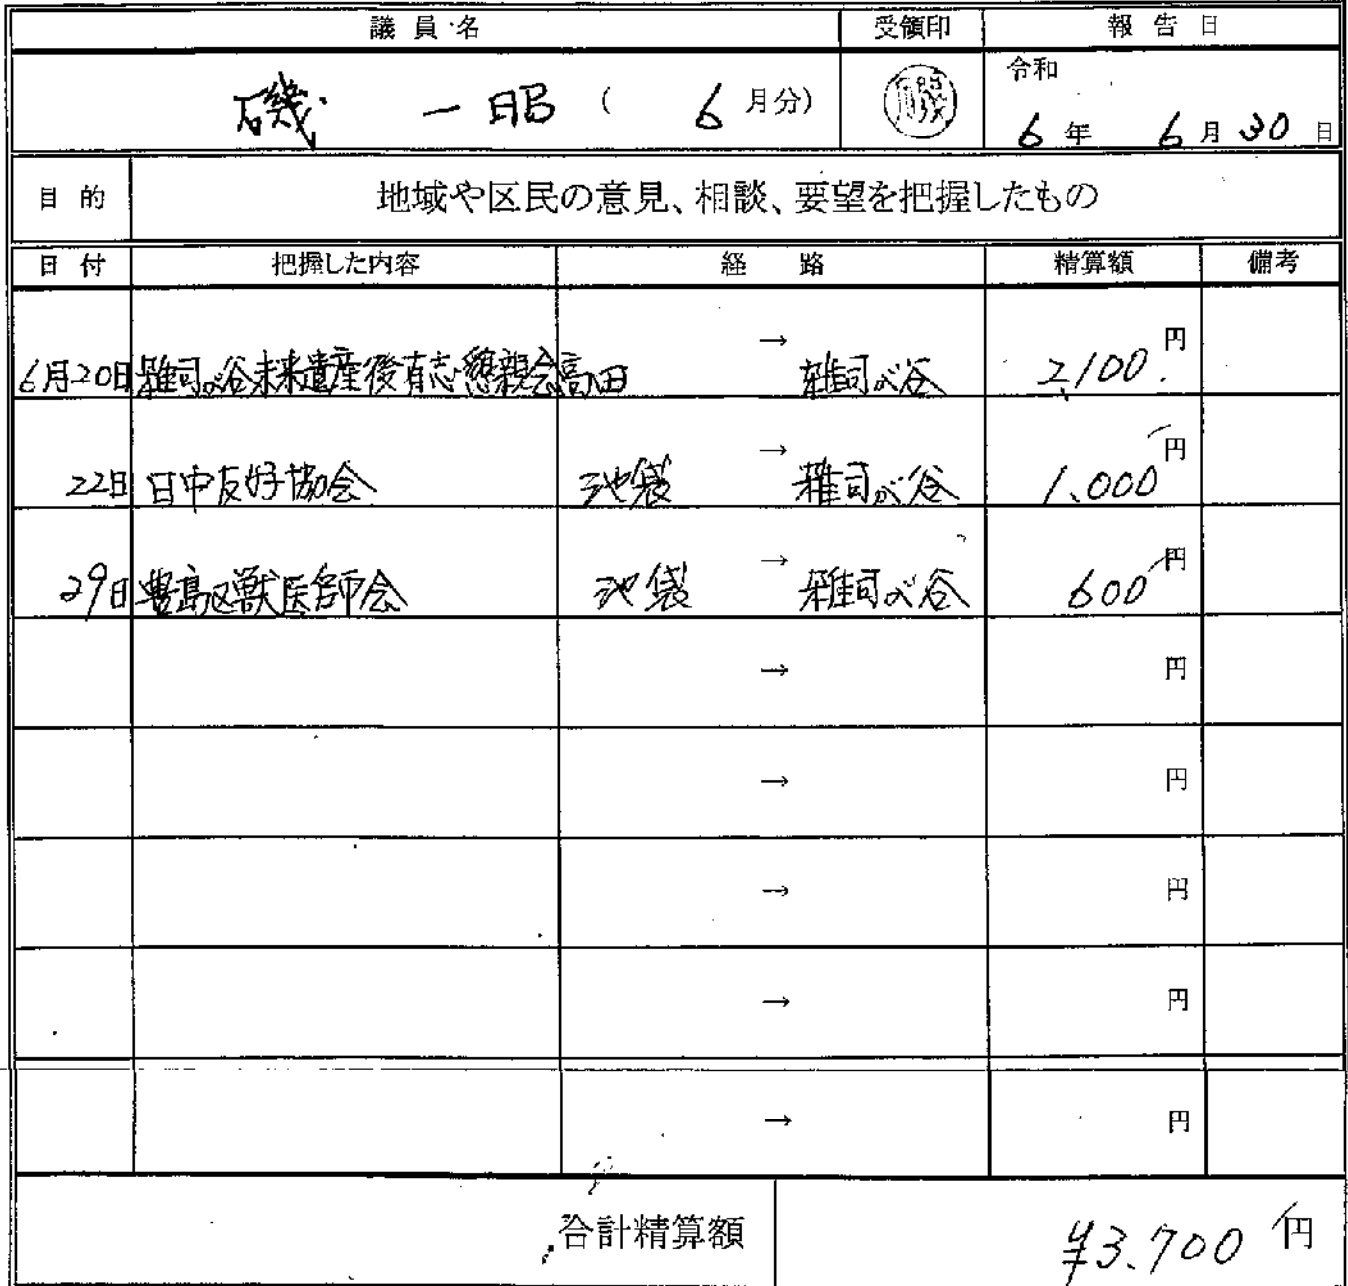 議員名 受領印 報告日
磯 一昭 ( 6 月分) 令和
6 年 6 月 30 日
目的 地域や区民の意見、相談、要望を把握したもの
日付 把握した内容 経路 精算額 備考
6月20日 雑司が谷未来遺産後有志懇親会 高田 → 雑司が谷 2,100 円
22日 日中友好協会 池袋 → 雑司が谷 1,000 円
29日 豊島区獣医師会 池袋 → 雑司が谷 600 円
→ 円
→ 円
→ 円
→ 円
→ 円
合計精算額 ¥3,700 円